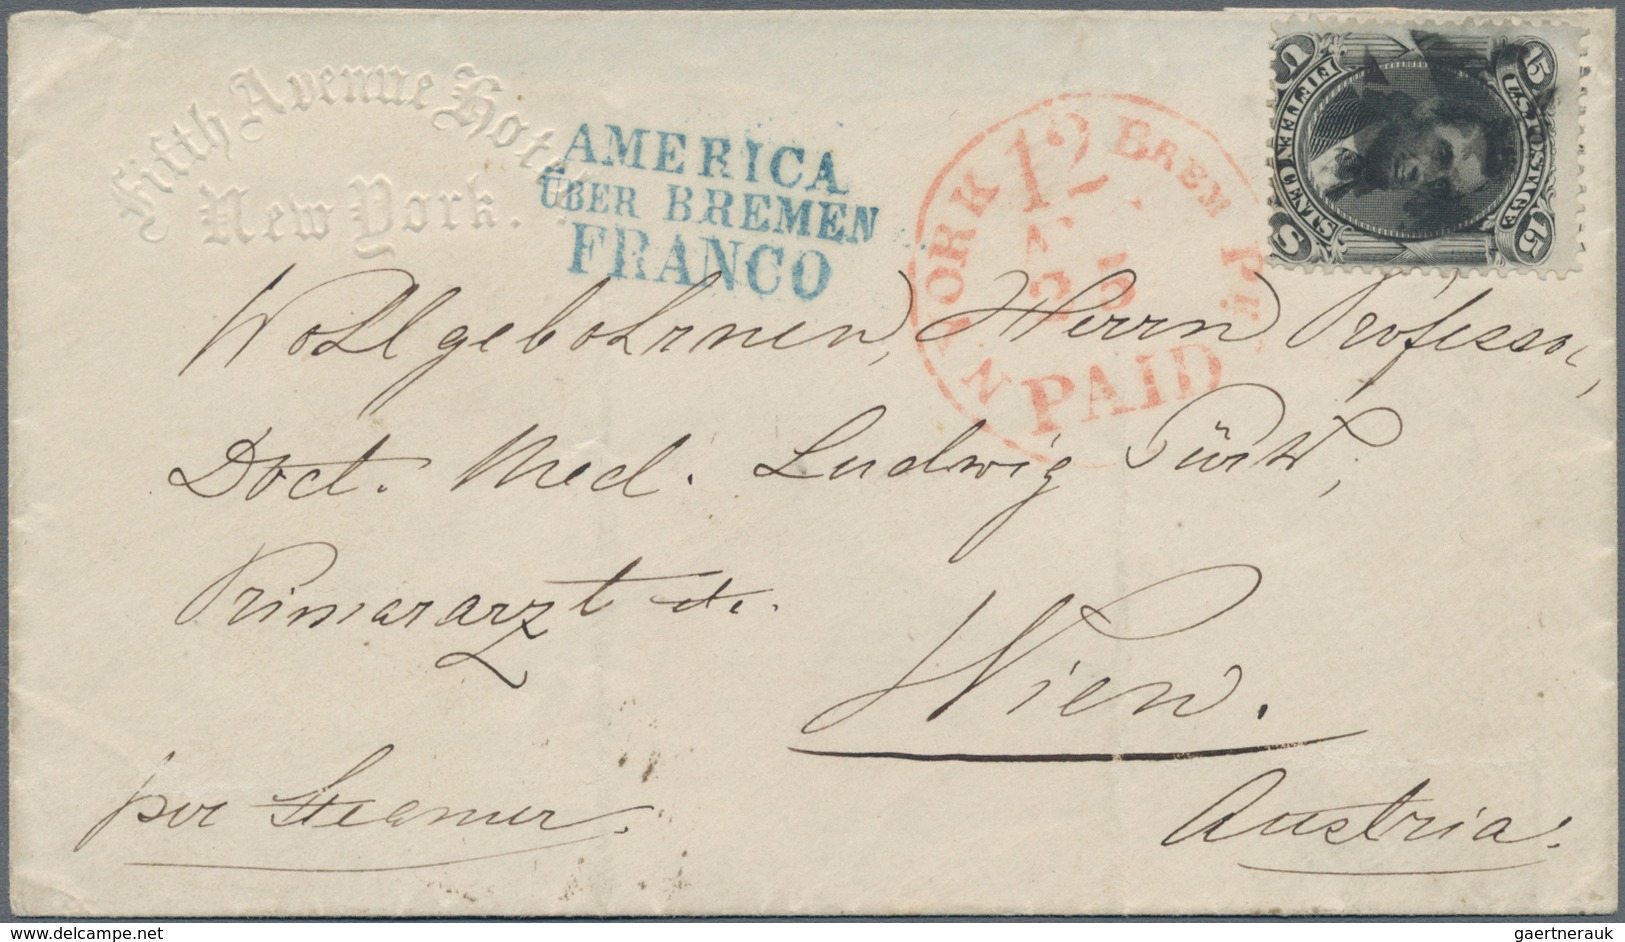 Fifth Avenue Hotel
New York.
AMERICA
ÜBER BREMEN
FRANCO
N YORK 12 BREM PK
25
PAID
U.S. POSTAGE
15 15
FIFTEEN CENTS
U S
Wohlgebohrnen, Herrn Professor,
Doct. Med. Ludwig
Primararzt etc.
Wien.
per Steamer.
Austria.
gaertnerauk
www.delcampe.net